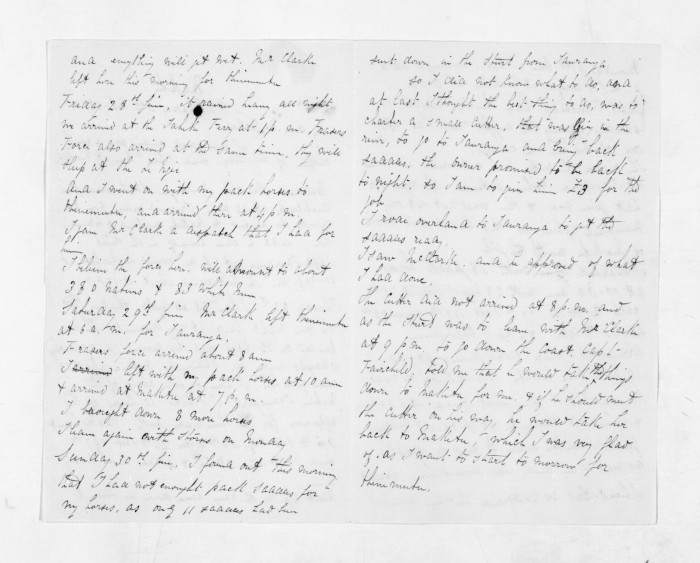 and everything will get wet. Mr Clark
left here this morning for Ohinemutu
Friday 28th Jan, it rained hard all night
we arrived at the Taheke Ferry at 1 p.m. Frasers
Force also arrived at the same time, they will
sleep at the
And I went on with my pack horses to
Ohinemutu, and arrived there at 4 p.m.
I gave Mr Clark a despatch that I had for
him.
I believe the force here will amount to about
380 natives & 83 white men
Saturday 29th Jan Mr Clark left Ohinemutu
at 6 a.m. for Tauranga.
Frasers force arrived about 8 am
I arrived left with my pack horses at 10 am
& arrived at Maketu at 7 p.m.
I brought down 8 more horses
I leave again with stores on Monday
Sunday 30th Jan, I found out this morning
that I had not enought pack saddles for
my horses, as only 11 saddles had been
sent down in the Sturt from Tauranga
so I did not know what to do, and
at last I thought the best thing to do, was to
charter a small cutter, that was in the
river, to go to Tauranga and bring back
saddles. the owner promised to be back
to night. so I am to give him £3 for the
job
I rode overland to Tauranga to get the
saddles ready
I saw Mr Clark. and he approved of what
I had done.
The cutter did not arrived at 8 p.m. and
as the Sturt was to leave with Mr Clark
at 9 p.m. to go down the coast, Capt-
Fairchild, told me that he would take the things
down to Maketu for me & if he should meet
the cutter on his way, he would take her
back to Maketu, which I was very glad
of. as I want to start to morrow for
Ohinemutu.